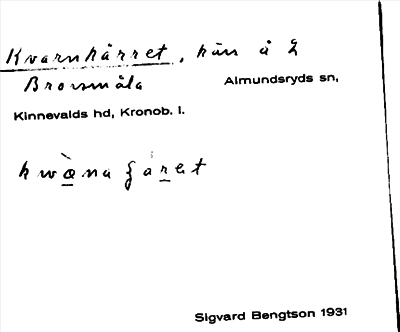 Kvarnkärret, kän å 2
Brorsmåla Almundsryds sn,
Kinnevalds hd, Kronob. l.
Sigvard Bengtson 1931